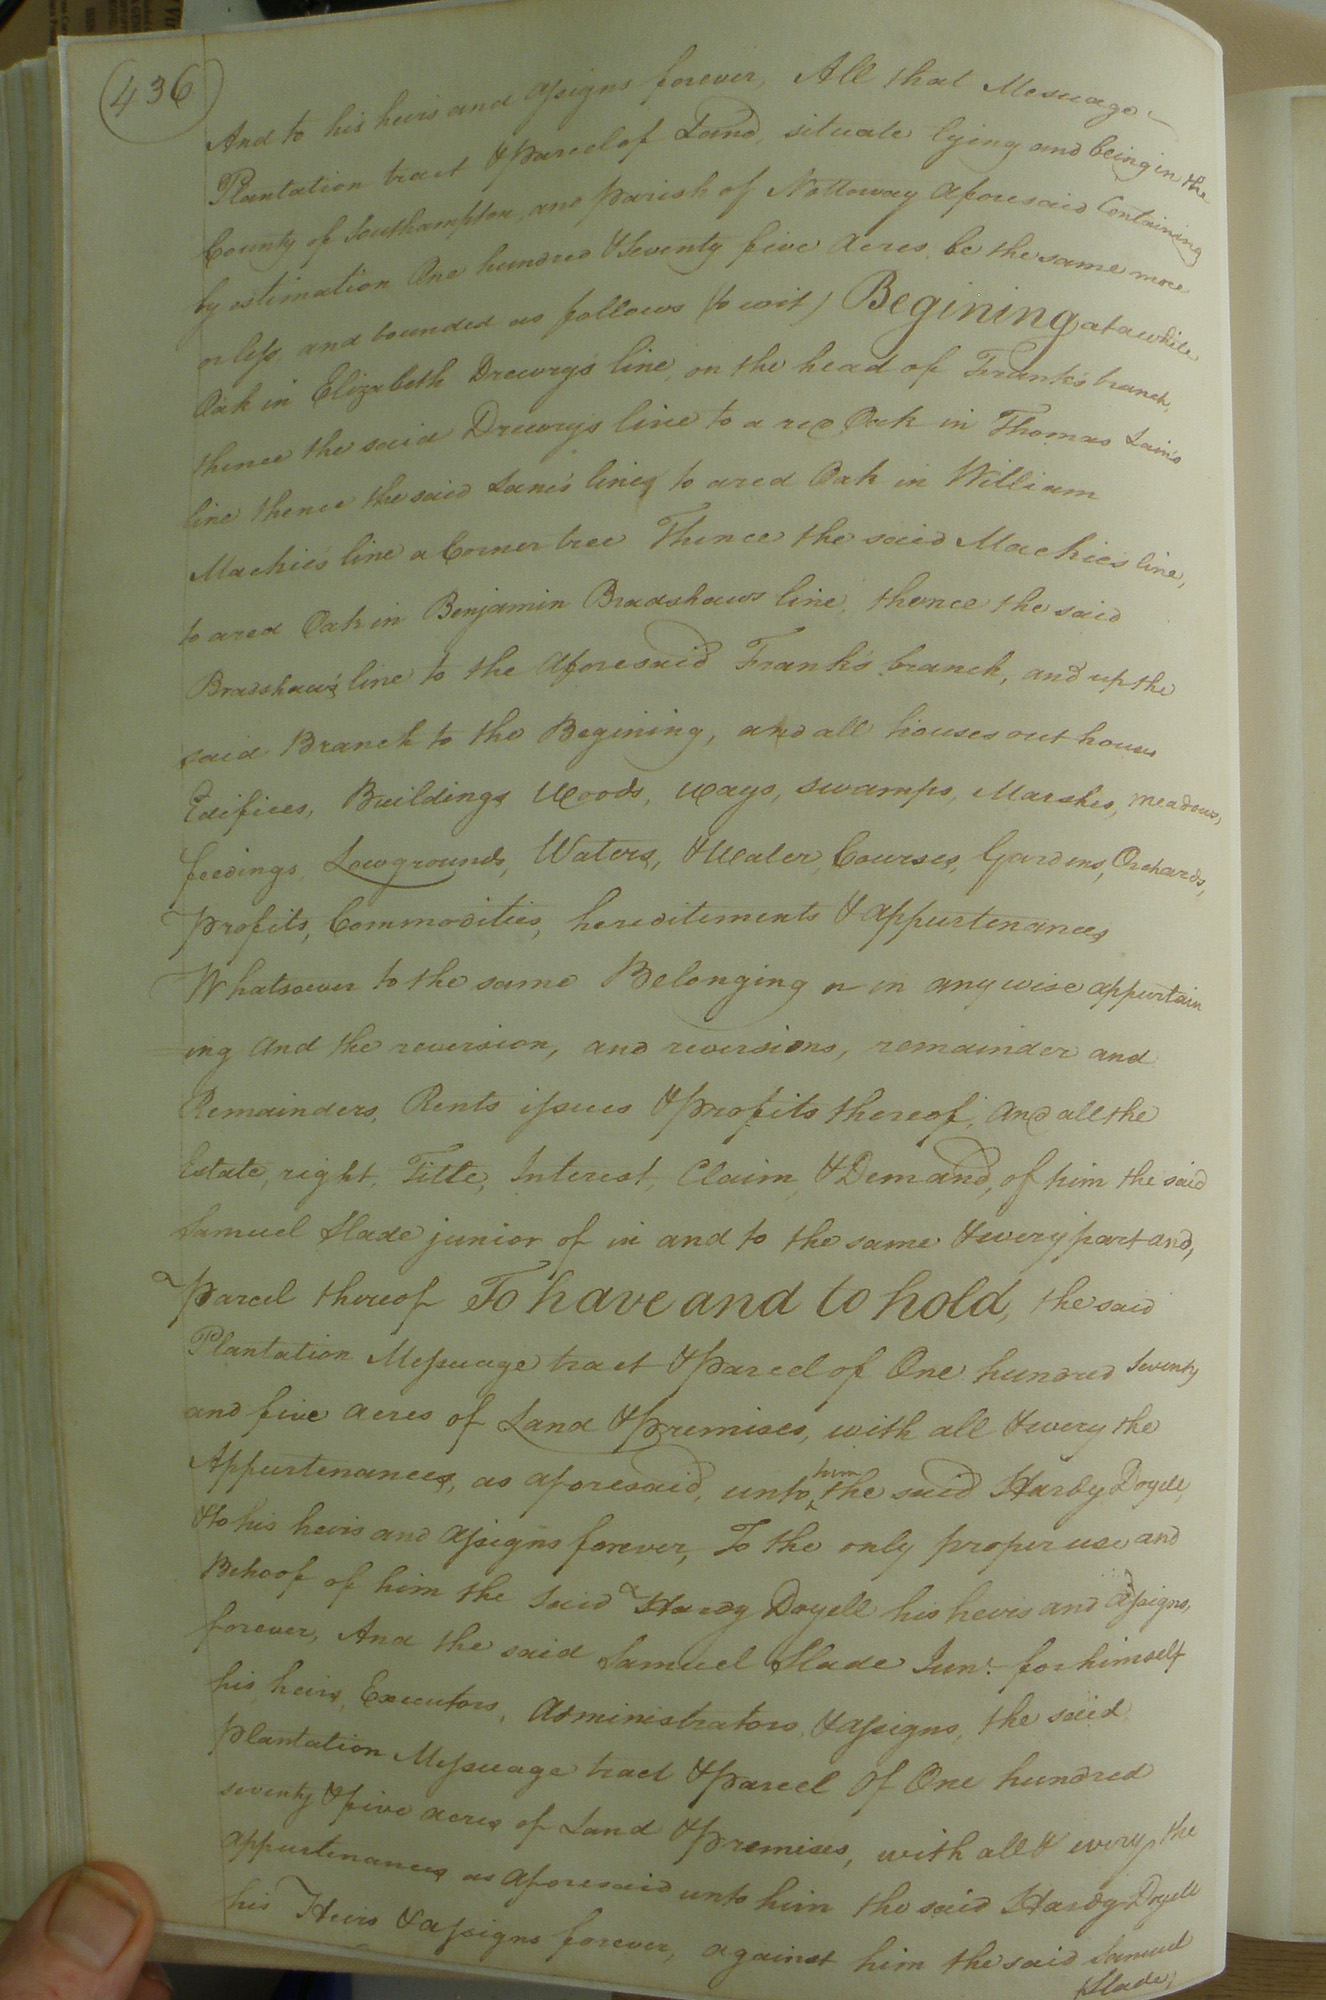 436
And to his heirs and assigns forever, All that Mesuage
Plantation tract & Parcel of Land, situate lying and being in the
County of Southampton, and Parish of Nottoway aforesaid Containing
by estimation One hundred & Seventy five Acres, be the same more
or less, and bounded as follows (to wit) Begining at a white
Oak in Elizabeth Drewry's line, on the head of Frank's branch,
thence the said Drewry's line to a red Oak in Thomas Lain's
line thence the said Lane's lines to a red Oak in William
Mackie's line a Corner tree Thence the said Mackie's line,
to a red Oak in Benjamin Bradshaws line, thence the said
Bradshaw's line to the aforesaid Frank's branch, and up the
said Branch to the Begining, and all houses out houses
Edifices, Buildings Woods, ways, swamps, Marshes, meadows,
feedings, Lowgrounds, Waters, & Water, Courses, Gardens, Orchards,
Profits, Commodities, hereditements & appurtenances
Whatsoever to the same Belonging or in any wise appurtain
ing and the reversion, and reversions, remainder and
Remainders, Rents issues & profits thereof, and all the
Estate, right, Title, Interest, Claim, & Demand, of him the said
Samuel Slade junior of in and to the same & every part and,
Parcel thereof To have and to hold, the said
Plantation Messuage tract & Parcel of One hundred seventy
and five acres of Land & Premises, with all & every the
Appurtenances, as aforesaid, unto him the said Hardy Doyell,
& to his heirs and assigns forever, To the only proper use and
Behoof of him the said Hardy Doyell his heirs and assigns,
forever, And the said Samuel Slade Junr. for himself
his heirs, Executors, Administrators, & assigns, the said
Plantation Messuage tract & Parcel of One hundred
seventy & five acres of Land & Premises, with all & every the
appurtenances as aforesaid unto him the said Hardy Doyell
his Heirs & assigns forever, against him the said Samuel
Slade,